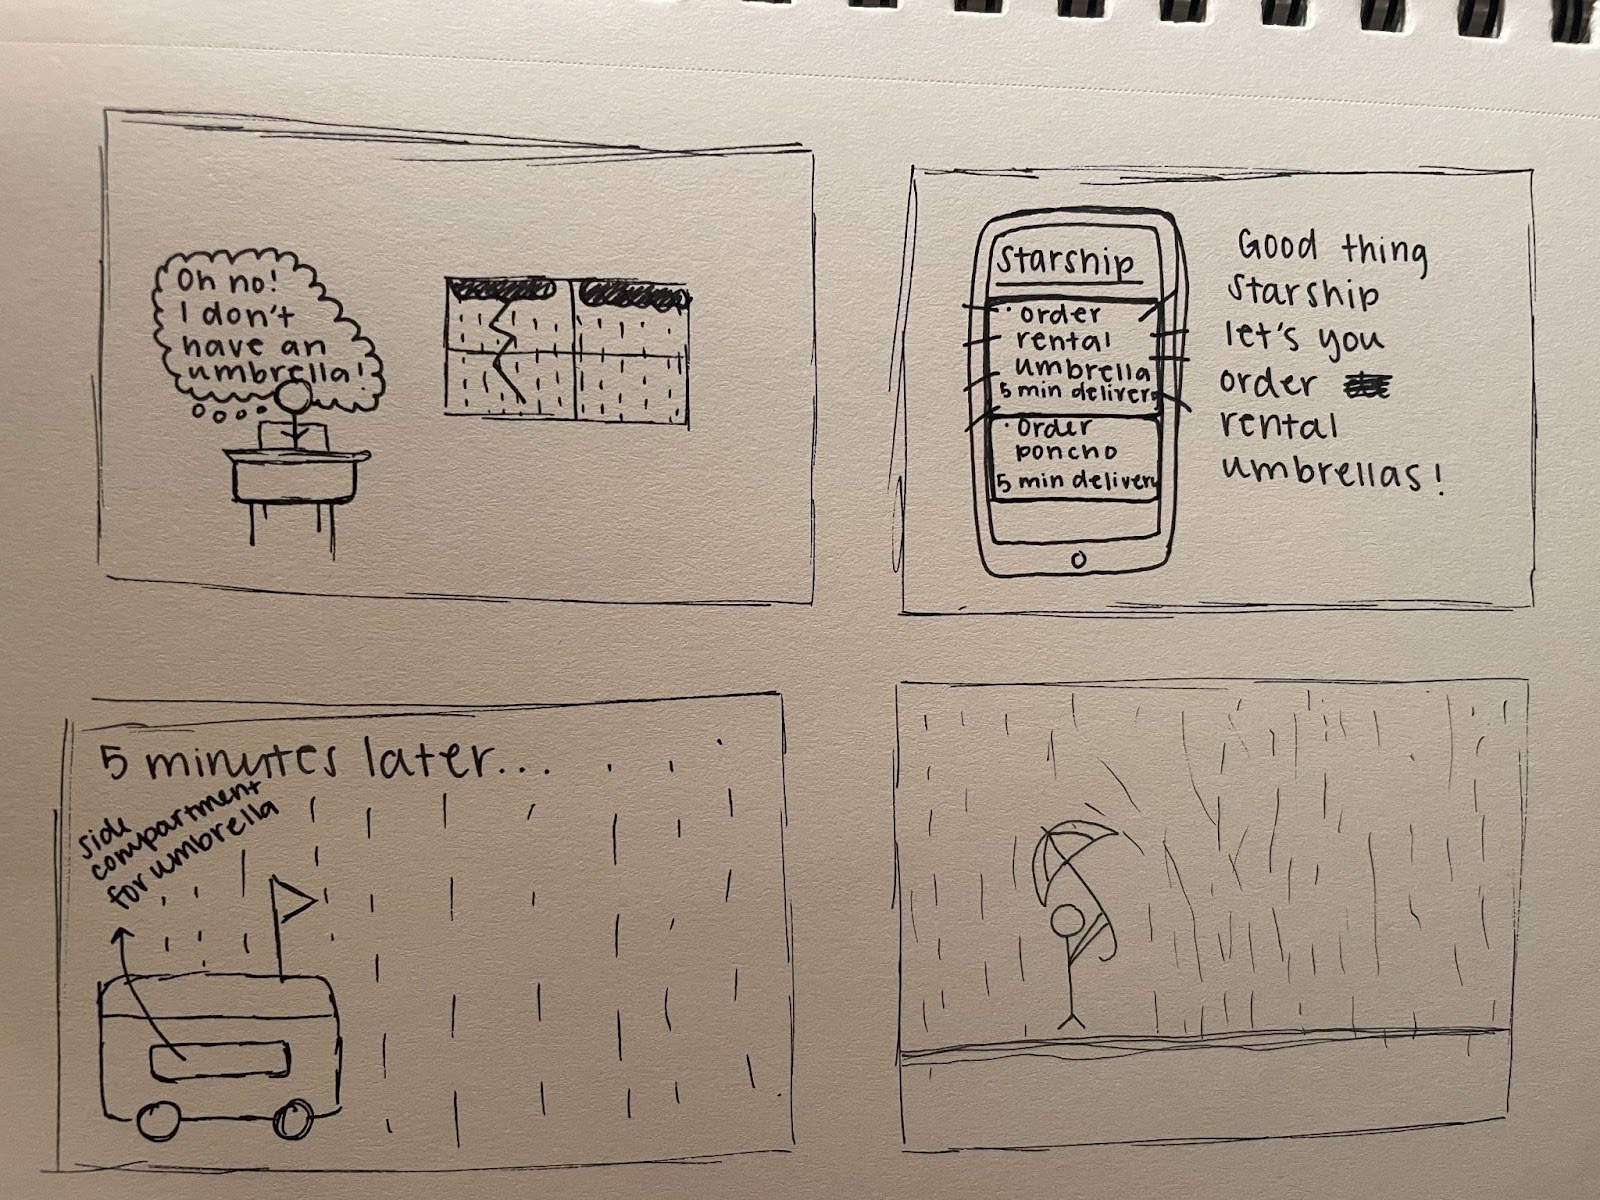 Oh no!
I don't
have an
umbrella!
Starship
· order
rental
umbrella
5 min delivery
· order
poncho
5 min delivery
Good thing
Starship
let's you
order
rental
umbrellas!
5 minutes later...
side
compartment
for umbrella